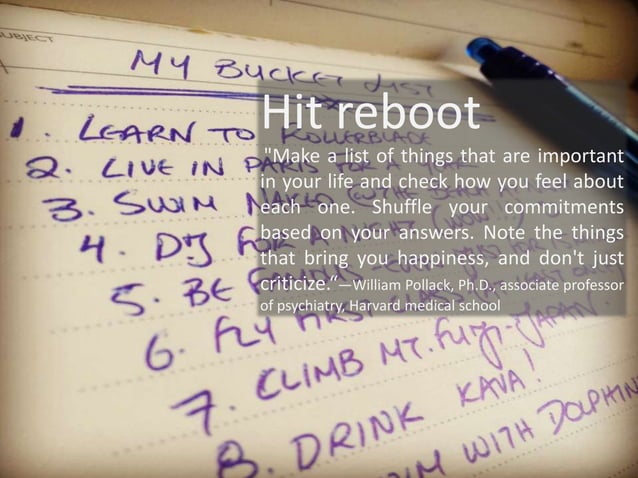 SUBJECT
MY BUCKET LIST
1. LEARN TO ROLLERBLADE
2. LIVE IN PARIS FOR A YEAR
3. SWIM NAKED
4. DJ FOR A NIGHT
5. BE FAMOUS - EVEN JUST FOR
6. FLY FIRST CLASS
7. CLIMB MT. FUJI - JAPAN.
8. DRINK KAVA!
WITH DOLPHIN
Hit reboot
"Make a list of things that are important
in your life and check how you feel about
each one. Shuffle your commitments
based on your answers. Note the things
that bring you happiness, and don't just
criticize.“—William Pollack, Ph.D., associate professor
of psychiatry, Harvard medical school